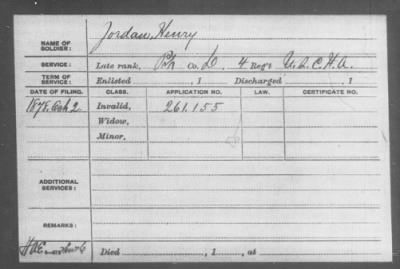 NAME OF SOLDIER: Jordan, Henry
SERVICE: Late rank, Pvt Co. D. 4 Reg't U.S.C.H.A.
TERM OF SERVICE: Enlisted , 1 Discharged , 1
DATE OF FILING. CLASS. APPLICATION NO. LAW. CERTIFICATE NO.
1878. 2 Invalid, 261.155
Widow,
Minor,
ADDITIONAL SERVICES:
REMARKS:
Died , 1 , at